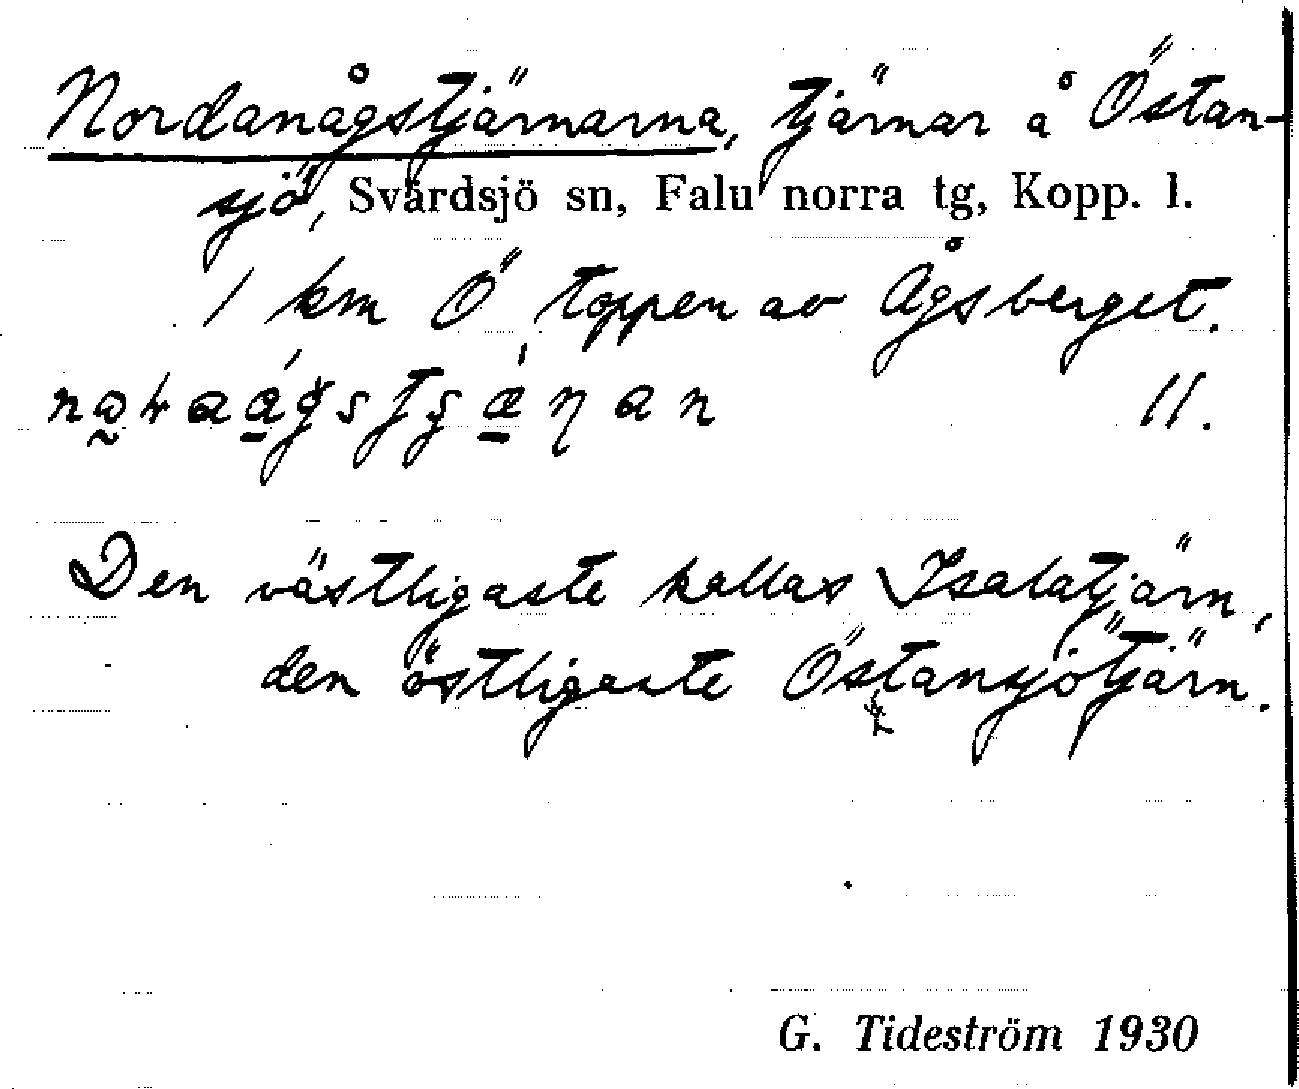 Nordanågstjärnarna, tjärnar å Östan-
sjö, Svärdsjö sn, Falu norra tg, Kopp. l.
1 km Ö toppen av Ågsberget.
11.
Den västligaste kallas Isalatjärn,
den östligaste Östansjötjärn.
G. Tideström 1930